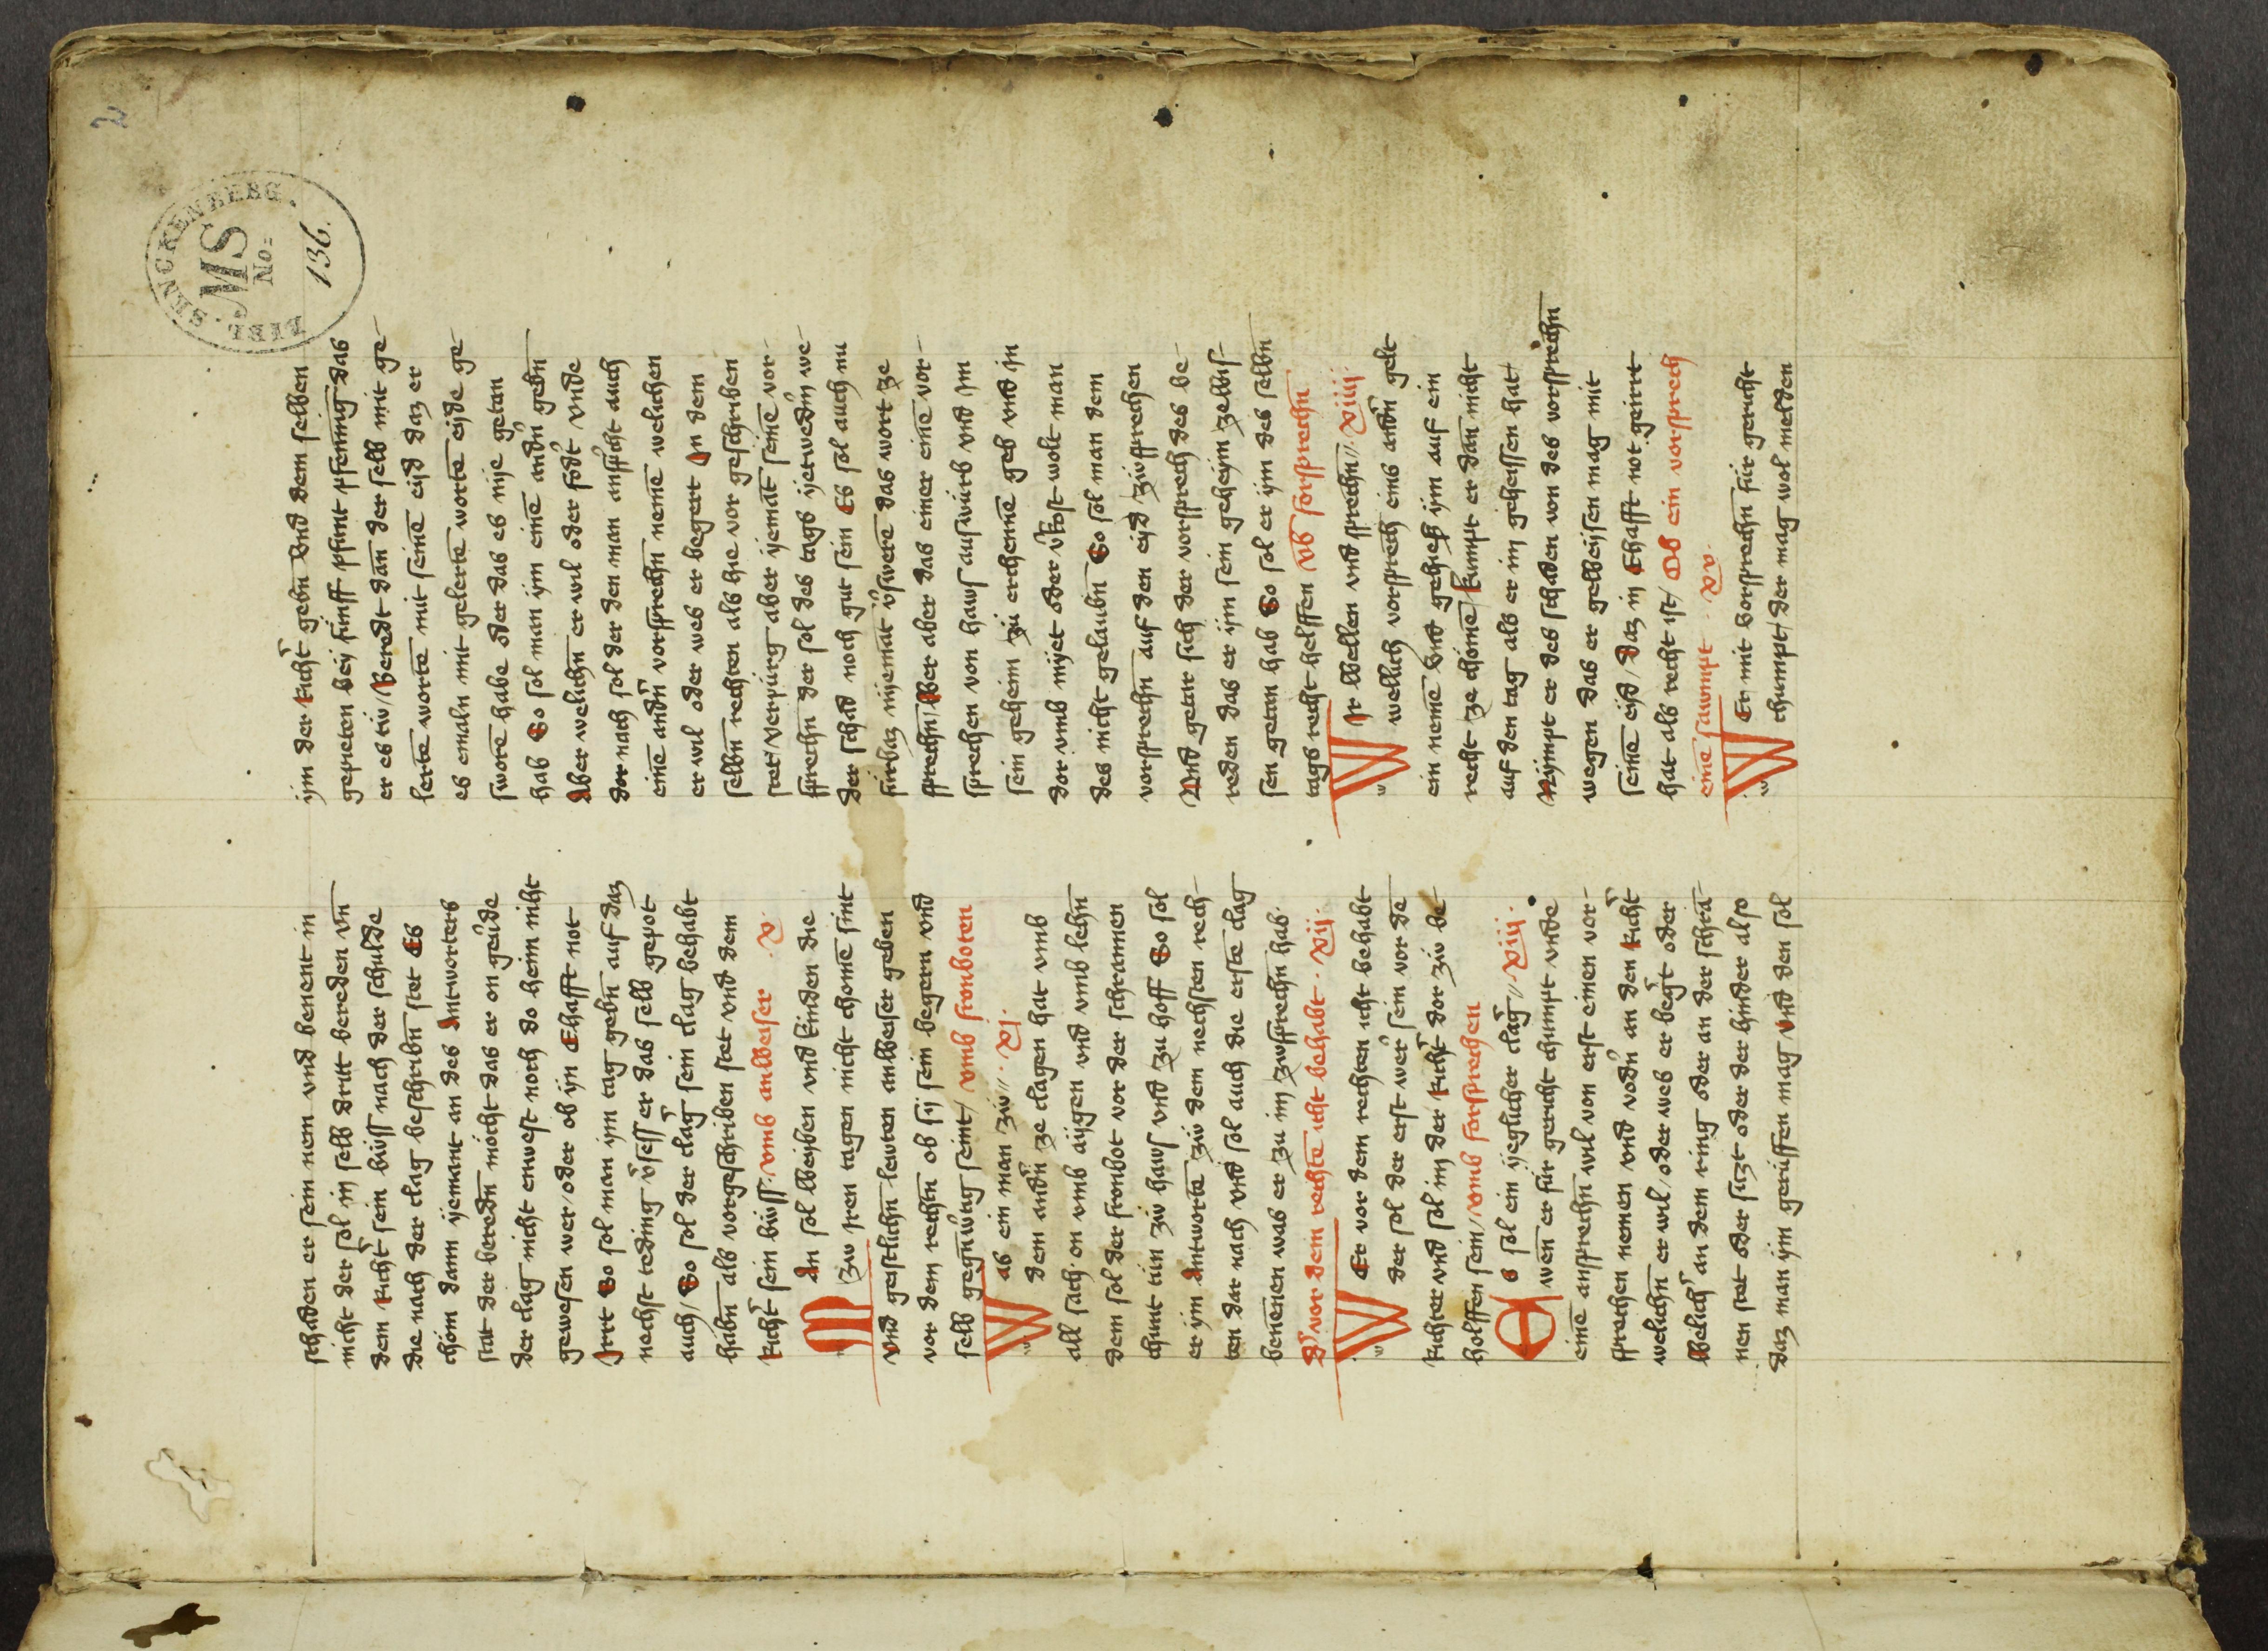 2
BIBL. SENCKENBERG.
MS
No=
136.
schaden er sein nem vnd benent in
nicht der sol in selb dritt bereden vn̄
dem Richt̾ sein buͤss nach der schulde
die nach der clag beschribn̄ stet Es
choͤm dann yemant an des Antworters
stat der beredn̄ moͤcht das er on geuͤde
der clag nicht enwest noch do heim nicht
gewesen wer / oder ob yn Ehafft not
Jrrt So sol man ym tag gebn̄ auf daz
nechst teding v̾sess er das selb gepot
auch / So sol der clag̾ sein clag behabt
habn̄ als vorgeschriben stet vnd dem
Richt̾ sein buͤss / vmb anbbeiser .x.
Man sol bbeyben vnd kinden die
zw iren tagen nicht chome͂ sint
vnd geistlichn̄ lewten anbbeiser geben
vor dem rechtn̄ ob sy sein begern vnd
selb gegnuͤrtig seint / vmb fronboten
Was ein man zw̋ .xi.
dem andn̄ ze clagen hat vmb
all sach on vmb aygen vnd vmb lehn̄
dem sol der fronbot vor der schrannen
chunt tun zw haws vnd zu hoff So sol
er ym Antworte͂ zw̋ dem nechsten rech-
ten dar nach vnd sol auch die erste clag
bene͂nen was er zu im zwsprechn̄ hab.
D̾ vor dem rechte͂ icht behabt .xij.
WEr vor dem rechten icht behabt
der sol der erst wer̾ sein vor de͂
Richter vnd sol im der Richt̾ dor zw be-
holffen sein / vmb forsprechen
Es sol ein yeglicher clag̾ .xiij.
wen er fuͤr gericht chumpt vnde
eine͂ ansprechn̄ wil von erst einen vor-
sprechen nemen vnd vodn̄ an den Richt̾
welichn̄ er wil / oder wes er beg̾t oder
bbelich̾ an dem ring oder an der schra͂-
nen stet oder siczt oder der hinder also
daz man ym geruͤffen mag vnd den sol
ym der Richt̾ gebn̄ vnd dem selben
gepieten bey fuͤmff pfunt pfennig das
er es tw / Beredt dan̄ der selb mit ge-
lerte͂ worte͂ mit seine͂ eyd daz er
es emaln mit gelerte͂ worte͂ eyde ge-
swore͂ habe oder das es nye getan
hab So sol man ym eine͂ andn̄ gebn̄
Aber welichn̄ er wil oder fod̾t vnde
dor nach sol der den man ansp̾cht auch
eine͂ andn̄ vorsprechn̄ neme͂ welichen
er wil oder wes er begert Jn dem
selbn̄ rechten als hie vor geschriben
stet / verpuͤrg aber yemāt seine͂ vor-
sprechn̄ der sol des tags yetwedn̾ we-
der schad noch gut sein Es sol auch nu
fuͤrbaz nyemāt v̾swere͂ das wort ze
sprechn̄ / Wer aber das einer eine͂ vor-
sprechen von haws ausfuͤrb vnd im
sein geheim zu̍ erchenne͂ geb vnd in
dor vmb myet oder v̾kost wolt man
des nicht gelaubn̄ So sol man dem
vorsprechn̄ auf den eyd zwsprechen
Vnd getar sich der vorsprech des be-
reden das er ym sein geheym zebbis-
sen getan hab So sol er ym des selbn̄
tags recht helffen vb forsprechn̄
WJr bbellen vnd sprechn̄ .xiiij.
wellich vorsprech eins andn̾ gelt
ein neme͂ vnd gehieß ym auf ein
recht ze chome͂ / kumpt er dan̄ nicht
auf den tag als er im geheissen hat
Nympt er des schaden von des vorsprechn̄
wegen das er gelbeysen mag mit
seine͂ eyd / daz in Ehafft not geirrt
hat als recht ist / Ob ein vorsprech
eine͂ sawmpt .xv.
WEr mit vorsprechn̄ fuͤr gericht
chumpt / der mag wol melden